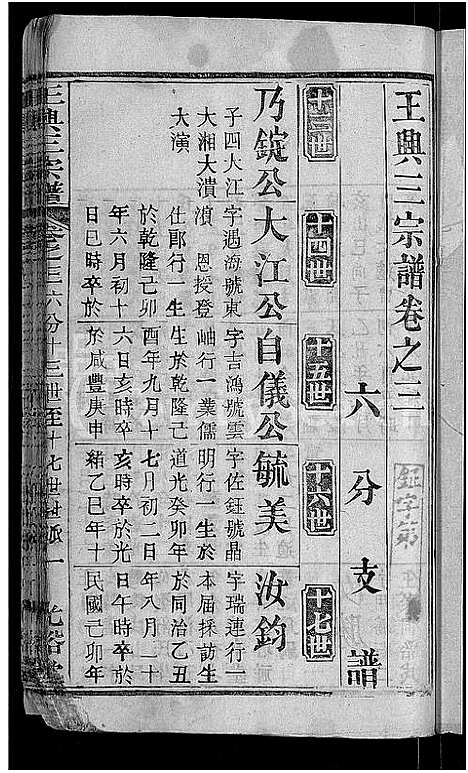 王興三宗譜卷之三
六分支譜
十三世 十四世 十五世 十六世 十七世
乃錠公
子四大江
大湘大濆
大演
大江公
字遇海號東
濵 恩授登
仕郎行一生
於乾隆己卯
年六月初十
日巳時卒於
白儀公
字吉鴻號雲
岫行一業儒
生於乾隆己
酉年九月十
六日亥時卒
於咸豐庚申
毓美
字佐鈺號晶
明行一生於
道光癸卯年
七月初二日
亥時卒於光
緒乙巳年十
汝鈞
字瑞連行一
本届採訪生
於同治乙丑
年八月二十
日午時卒於
民國己卯年
王興三宗譜
卷之三六分十三世至十七世
一